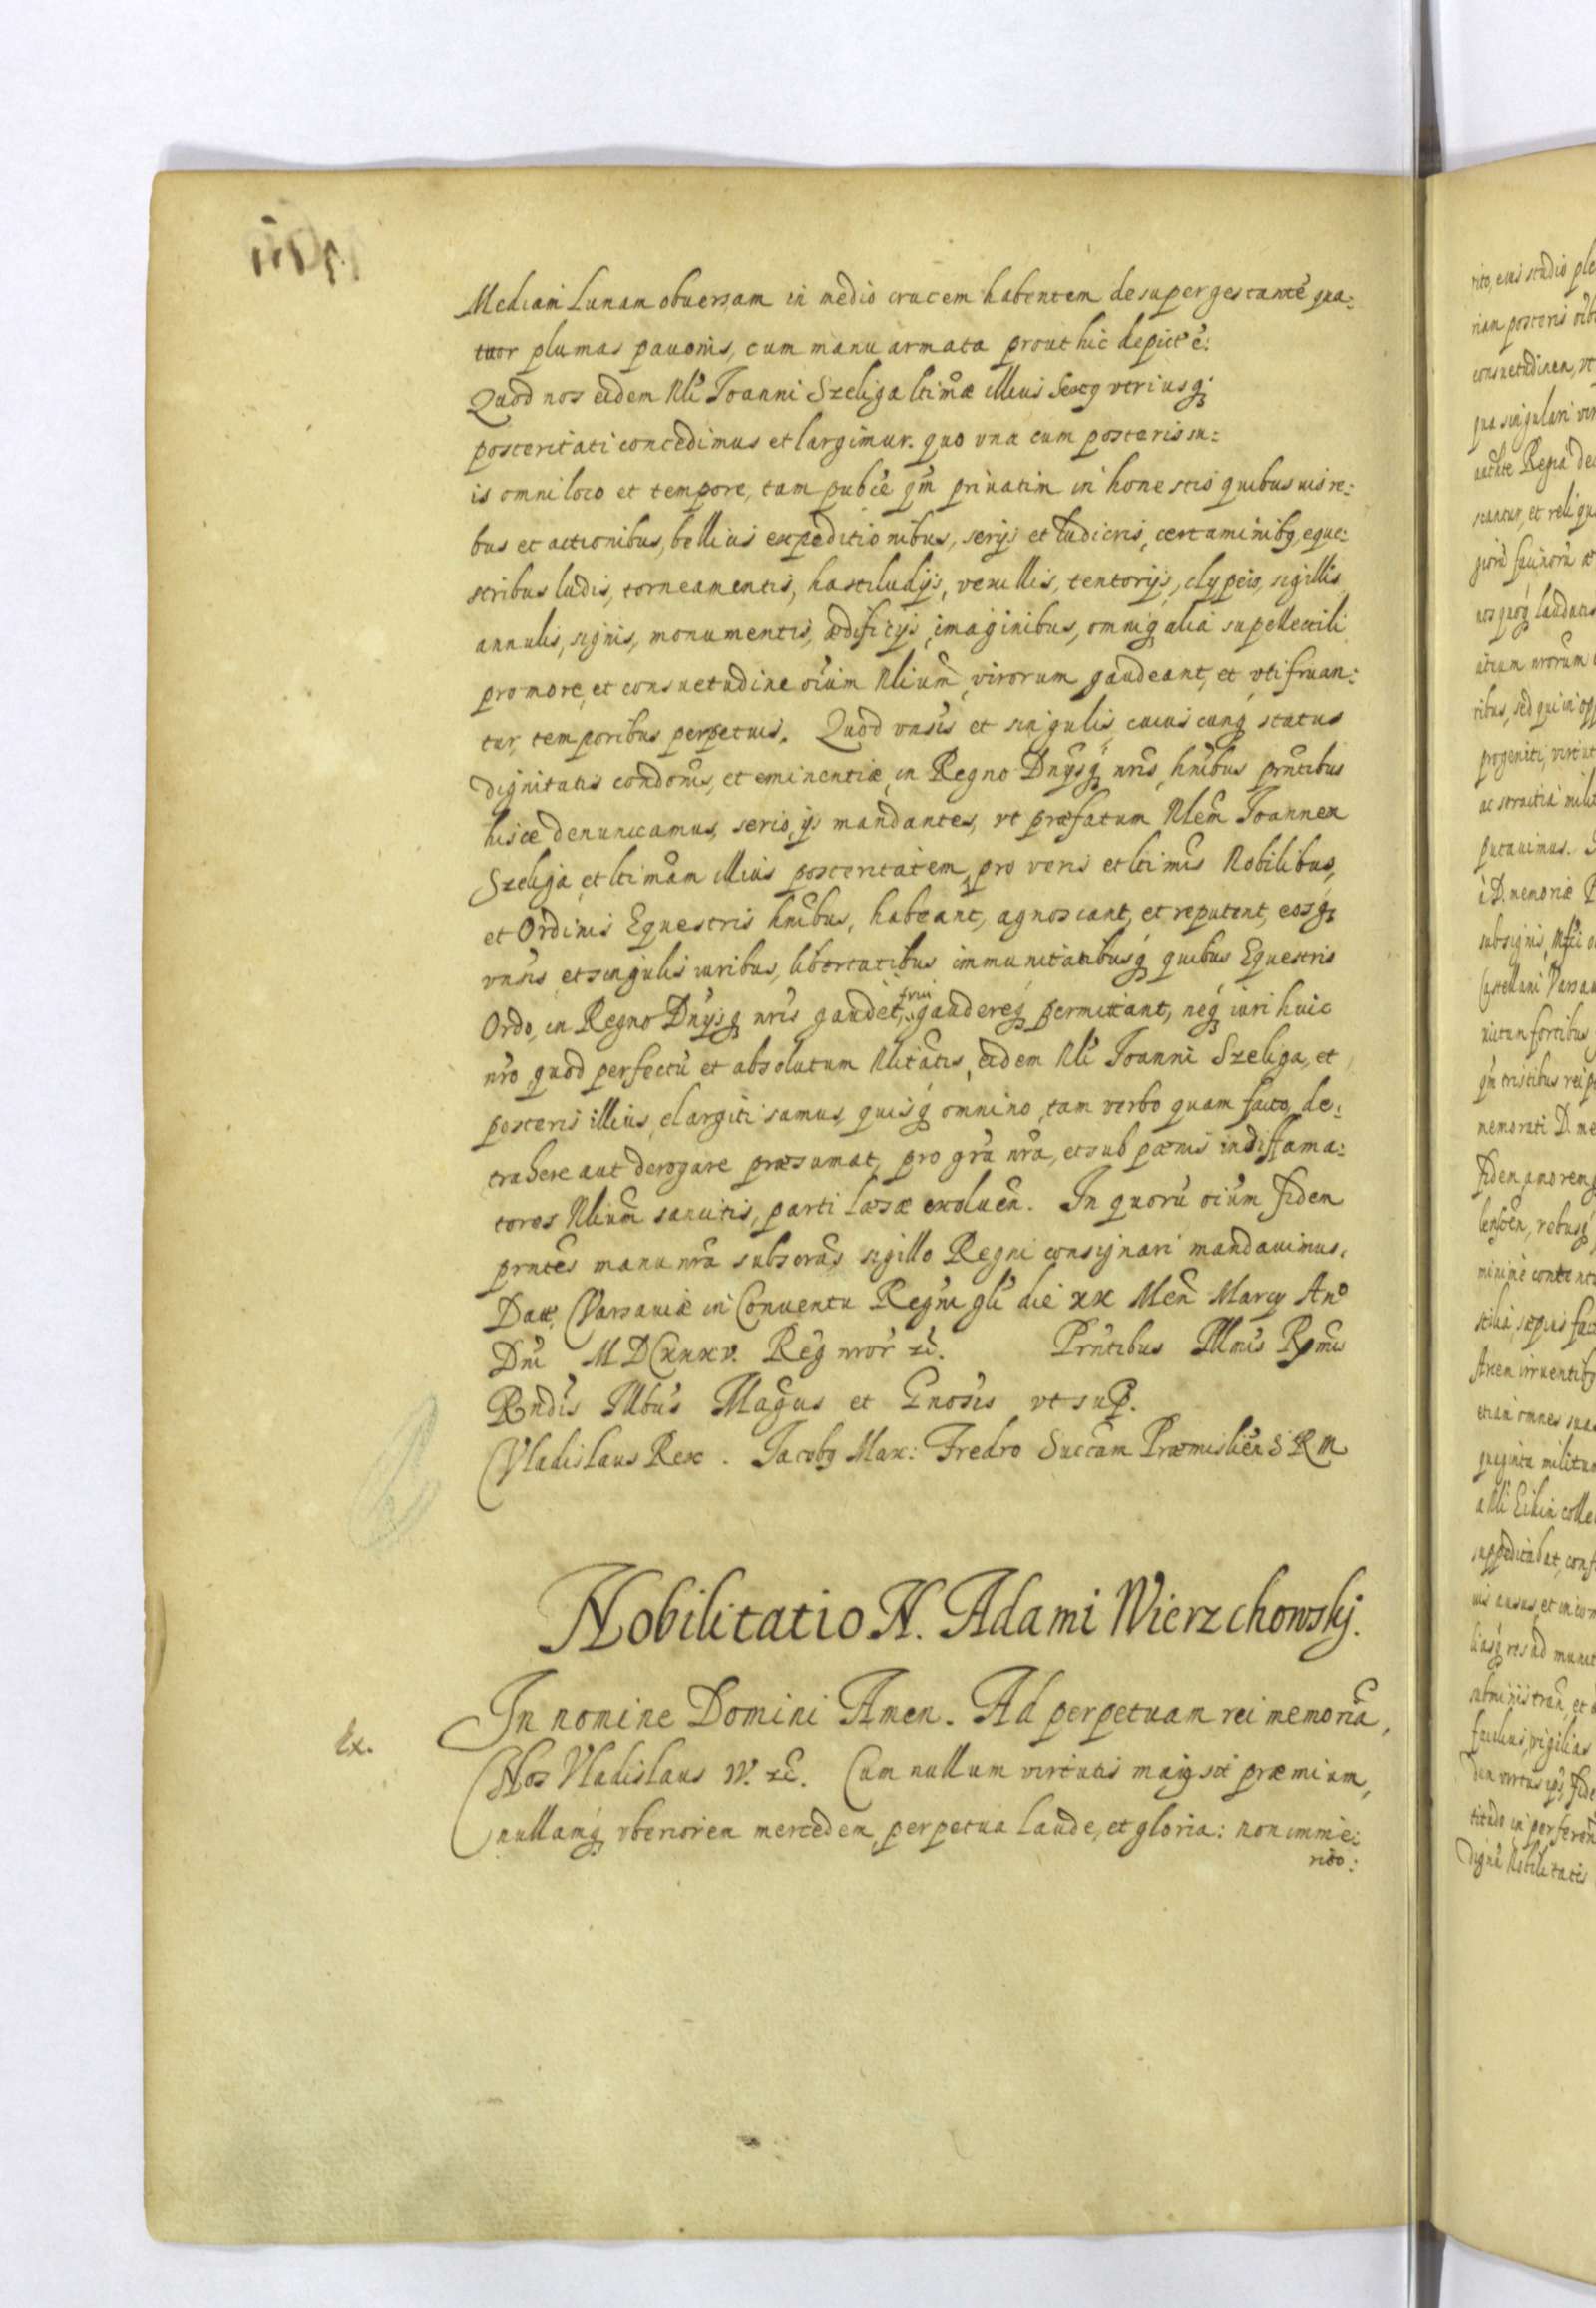 Mediam Lunam obuersam in medio crucem habentem desuper gestante qua:
tuor plumas pauonis, cum manu armata prout hic depict' é.
Quod nos eidem Nli Joanni Szeliga ltimæ illius Sexq vtriusq;
posteritati concedimus et largimur. quo vna cum posteris su:
is omni loco et tempore, tam publce qm priuatim in honestis quibusuis re:
bus et actionibus, bellicis expeditionibus, serijs et ludicris, certaminibq, eque:
stribus ludis, torneamentis, hastiludijs, vexillis, tentorijs, clypeis, sigillis
annulis, signis, monumentis, ædificijs, imaginibus, omniq alia supellectili
pro more, et consuetudine oium Nlium virorum gaudeant, et vti fruan:
tur, temporibus perpetuis. Quod vnsis et singulis, cuiuscunq status
dignitatis condonis, et eminentiæ, in Regno Dnysq nris, hnibus prntibus
hisce denunciamus, serio ijs mandantes, vt præfatum Nlem Joannem
Szeliga, et ltimam illius posteritatem, pro veris et ltimis Nobilibus,
et Ordinis Equestris hnibus, habeant, agnoscant, et reputent, eosq
vnsis et singulis iuribus, libertatibus immunitatibusq quibus Equestris
Ordo, in Regno Dnijsq nris gaudet, frui gaudereq permittant, neq iuri huic
nro, quod perfectu et absolutum Nlitatis, eidem Nli Joanni Szeliga, et
posteris illius, elargiti sumus, quisq omnino, tam verbo quam facto, de:
trahere aut derogare præsumat, pro gra nra, et sub poenis in diffama:
tores Nlium sancitis, parti læsæ exoluen. In quoru oium fidem
prntes manu nra subscras, sigillo Regni consignari mandauimus.
Datt. Varsauiæ in Conuentu Regni gli die xx Men Marcy Ano
Dni MDCxxxv. Reg nror &c. Prntibus Illmis Rmis
Rndis Illbus Magcis et Gnosis vt sup.
Vladislaus Rex. Jacobq Max: Fredro Succam Præmislien S R M
Nobilitatio N. Adami Wierzchowskj.
In nomine Domini Amen. Ad perpetuam rei memoria,
Ex.
Nos Vladislaus IV. &c. Cum nullum virtutis maiq sit præmium,
nullamq vberiorem mercedem, perpetua laude, et gloria: non imme:
rito: